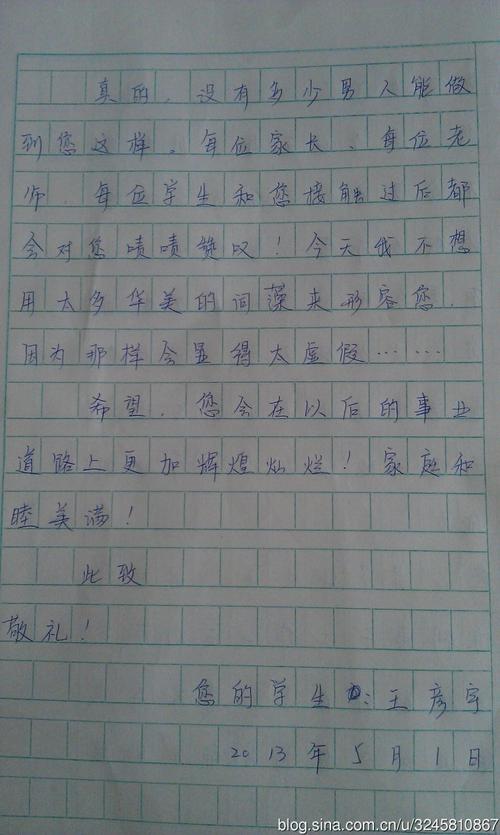 真的，没有多少男人能做
到您这样。每位家长、每位老
师、每位学生和您接触过后都
会对您啧啧赞叹！今天我不想
用太多华美的词藻来形容您，
因为那样会显得太虚假……
希望 您会在以后的事业
道路上更加辉煌灿烂！家庭和
睦美满！
此致
敬礼！
您的学生：王彦宇
2013年5月1日
blog.sina.com.cn/u/3245810867